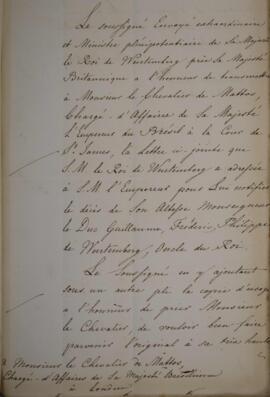 Le soussigné Envoyé extraordinaire
et Ministre plénipotentiaire de Sa Majesté
le Roi de Wurtemberg près Sa Majesté
Britannique a l'honneur de transmettre
à Monsieur le Chevalier de Mattos,
Chargé d'Affaires de Sa Majesté
l'Empereur du Brésil à la Cour de
St. James, la Lettre ci-jointe que
S.M. le Roi de Wurtemberg a adressée
à S.M. l'Empereur pour Lui notifier
le décès de Son Altesse Monseigneur
le Duc Guillaume, Frédéric, Philippe
de Wurtemberg, Oncle du Roi.
Le Soussigné en y ajoutant
sous un autre pli la copie d'usage
a l'honneur de prier Monsieur
le Chevalier, de vouloir bien faire
parvenir l'original à sa très haute
à Monsieur le Chevalier de Mattos
Chargé d'Affaires de Sa Majesté Brésilienne
à Londres